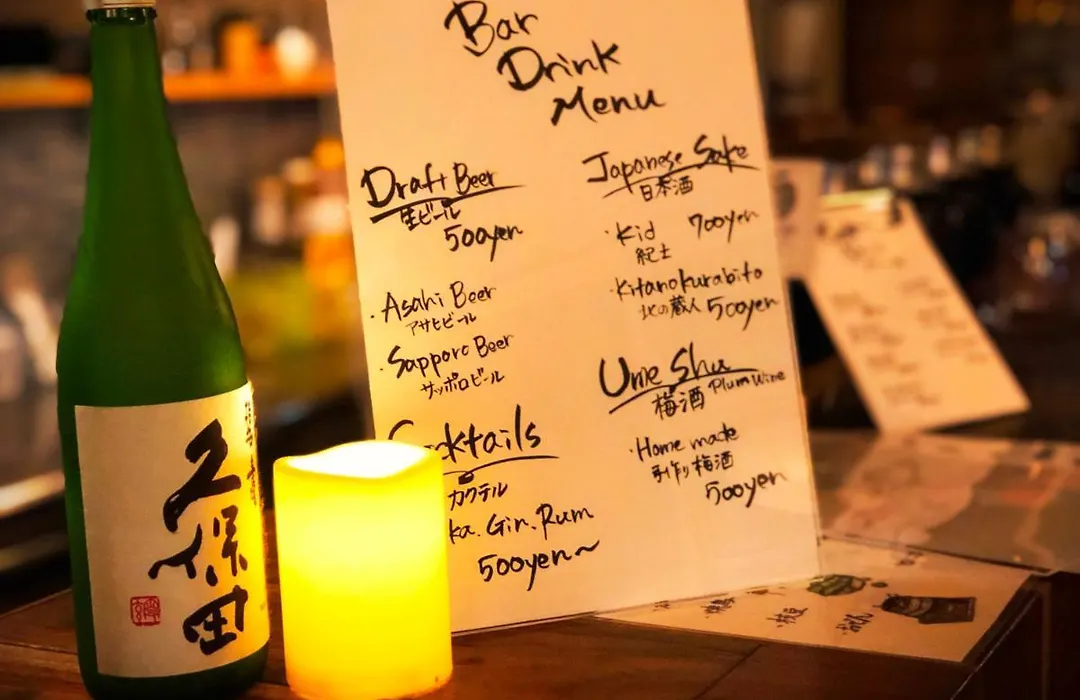 久保田
Bar
Drink
Menu
Draft Beer
生ビール
500yen
・Asahi Beer
アサヒビール
・Sapporo Beer
サッポロビール
Cocktails
カクテル
ka. Gin. Rum
500yen～
Japanese Sake
日本酒
・Kid 700yen
紀土
・Kitanokurabito
北の蔵人 500yen
Ume Shu
梅酒 Plum Wine
・Home made
手作り梅酒
500yen